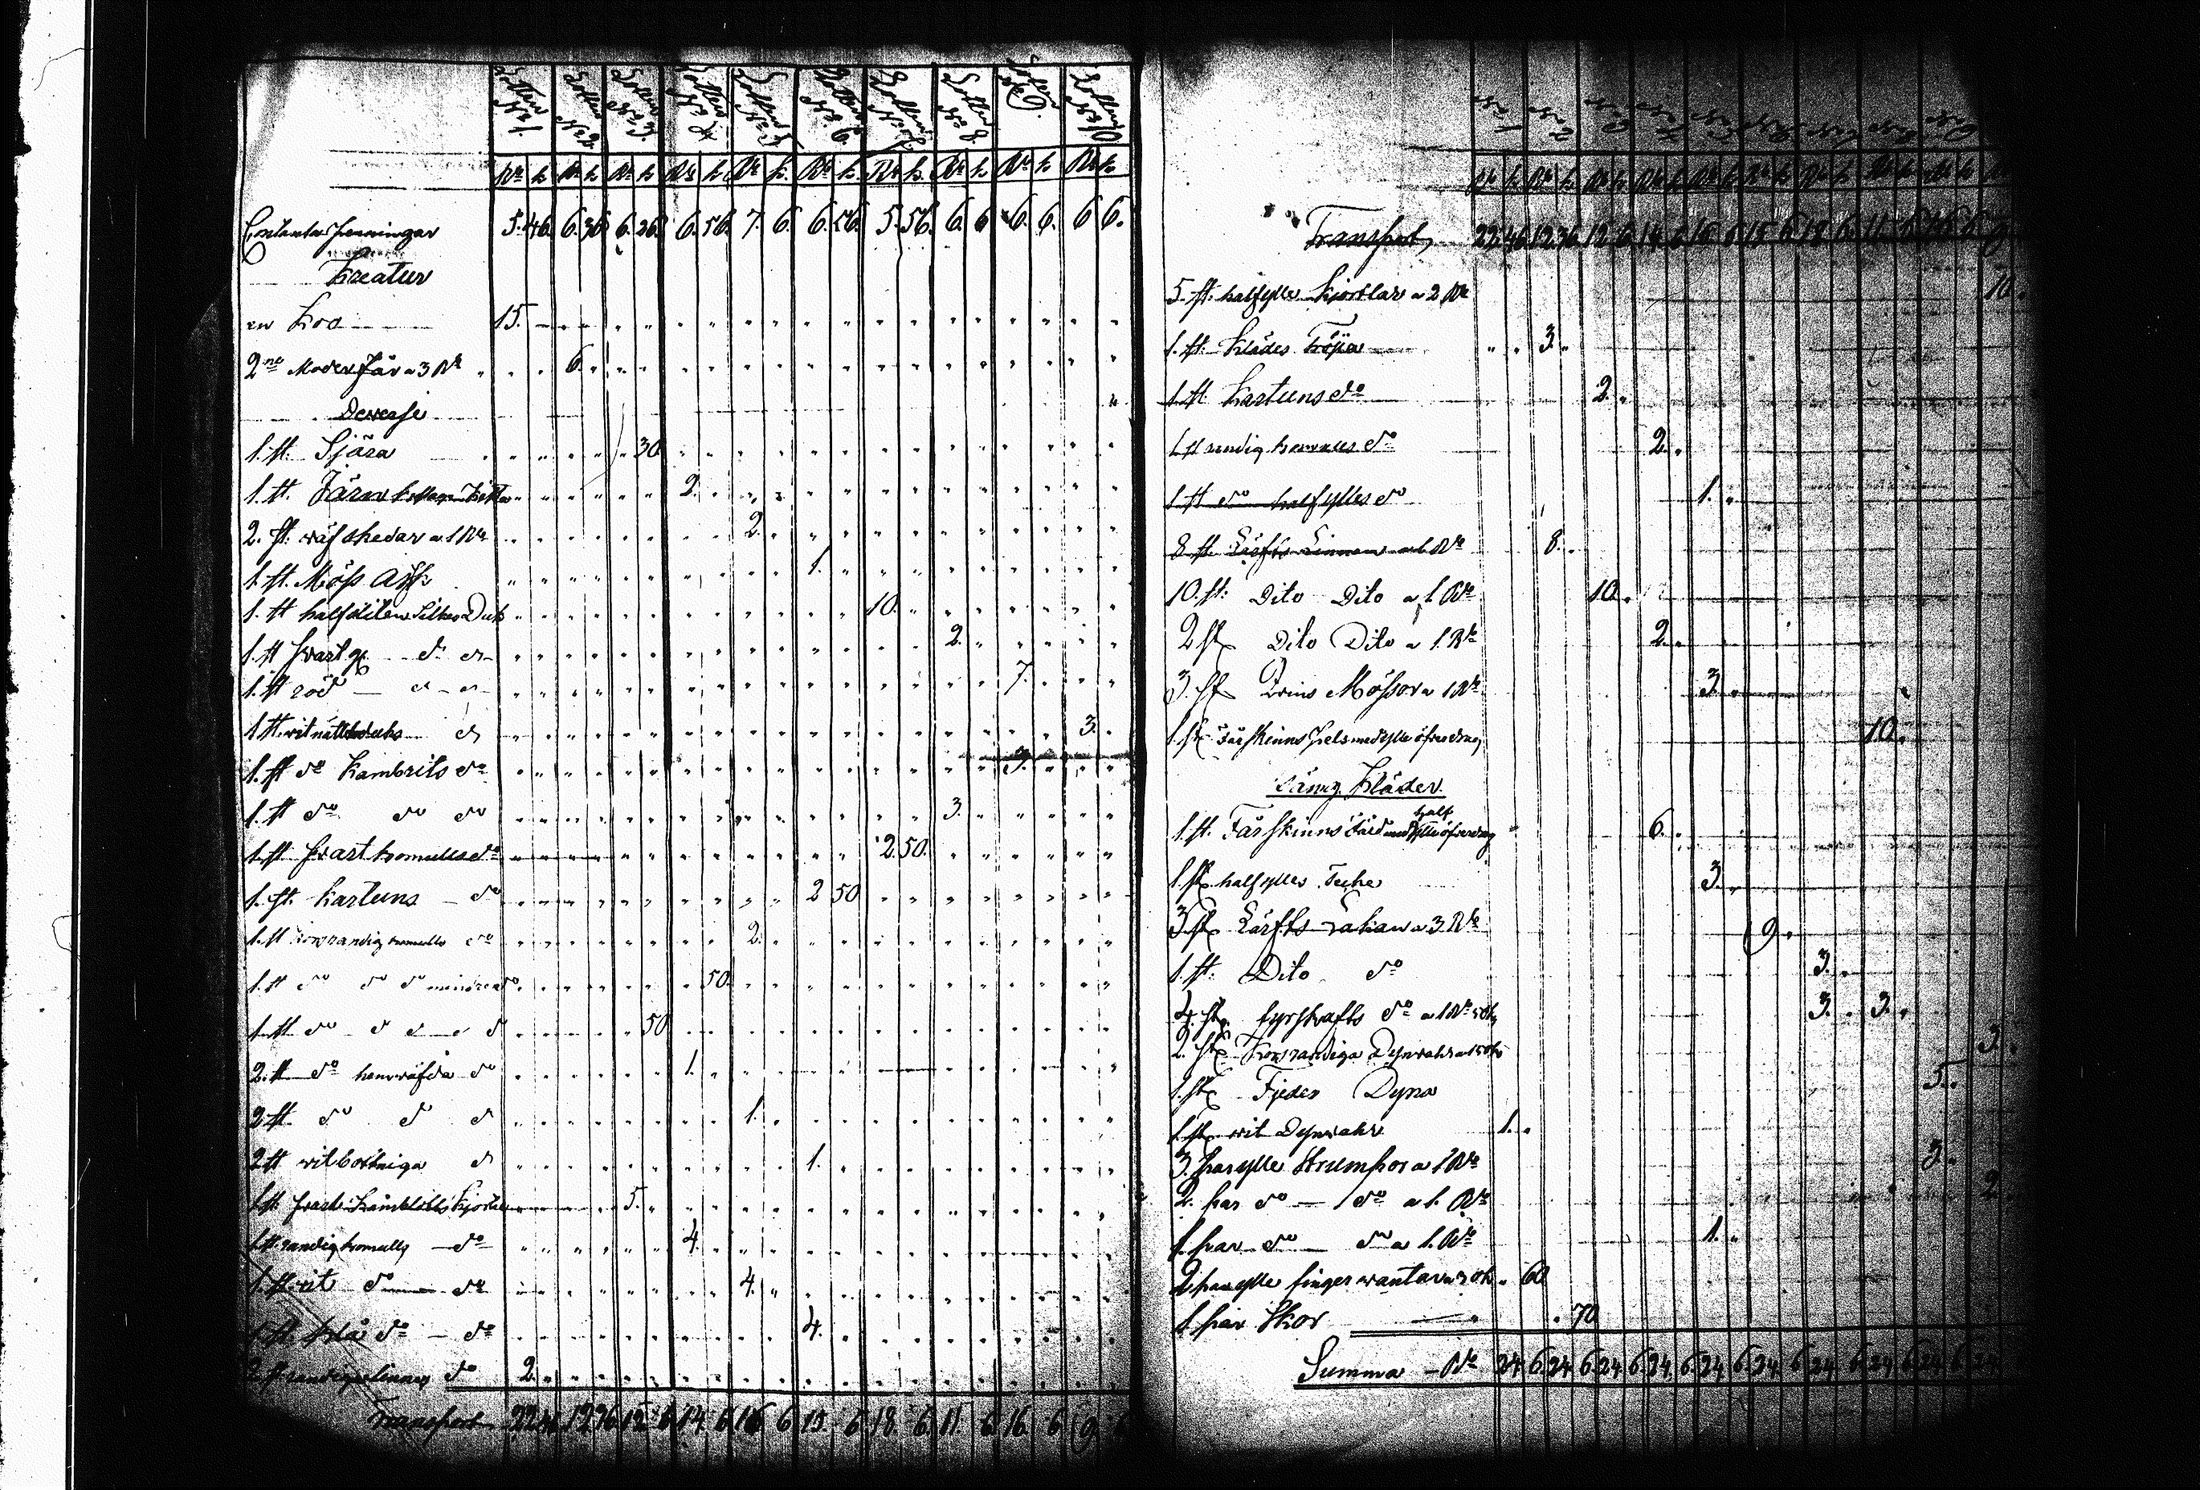 Lotten N:o 1. Lotten N:o 2. Lotten N:o 3. Lotten N:o 4 Lotten N:o 5 Lotten N:o 6. Lotten N:o 7. Lotten N:o 8 Lotten N:o 9. Lotten N:o 10.
Contanta penningar 5. 46. 6. 36 6. 26. 6. 56. 7. 6. 6. 56. 5. 56. 6. 6 6. 6. 6 6.
Kreatur
en Koo 15.
2ne Moder Får a 3 Rd 6.
Diverse
1. st. Sjära 30
1. st. Järn 2.
2. st. wäfskedar a 1 Rd 2.
1. st. Möss Ask 1.
1. st halfsliten Silkes Duk 10.
1. st svart do do 2.
1. st röd do do 7.
1. st. vit nättelduks do 3.
1. st do Kambrits do 3.
1. st do do do 3.
1. st svart bomulls do 2. 50.
1. st. Kartuns do 2 50
1. st korsrandig bomulls do 2.
1. st do do do mindre do 50.
1. st do d d d d 50
2. st do hemväfda do 1.
2 st do d d 1.
2 st vitbottniga d 1.
1 st. svart Kjortel 5.
1 st. randig bomulls do 4.
1 st. vit do do 4.
1. st. blå do do 4.
2 st randiga linne do 2.
Transport 22. 46 12 36 12. 6. 14. 6. 16 6 15. 6 18. 6. 11. 6. 16. 6. 9.
Transport 22. 46 12. 36 12. 6. 14. 6. 16 6 15. 6 18. 6. 11. 6. 16. 6. 9.
5. st. halfylle Kjortlar a 2 Rd 10.
1. st. Klädes Tröja 3.
1. st. Kartuns do 2.
1 st randig bomulls do 2.
1. st do halfylles do 1.
8 st. Lärfts Linnen a 1 Rd 8.
10. st. Dito Dito a 1 Rd 10.
2 st Dito Dito a 1. Rd 2.
3. st Mössor a 1 Rd 3.
1. st Fårskinns Pels med ylle öfverdrag 10.
Säng Kläder
1. st. Fårskinns Fäll med half ylle öfverdrag 6.
1. st halfylles Täcke 3.
3. st Lärfts Lakan a 3. Rd 9.
1. st. Dito do 3.
4. st fyrskafts do a 1 Rd 50 3. 3.
2. st Korsrandiga 3.
1. st Fjeder Dyna 5.
1. st vit Dynvahr 1.
3. par ylle Strumpor a 1 Rd 3.
2. par do do a 1. Rd 2
1. par do do a 1. Rd 1.
2 par ylle fingervantar a 30 60
1. par Skor 70
Summa Rd 24 6. 24 6. 24. 6 24. 6. 24. 6. 24. 6. 24. 6. 24. 6. 24. 6. 24